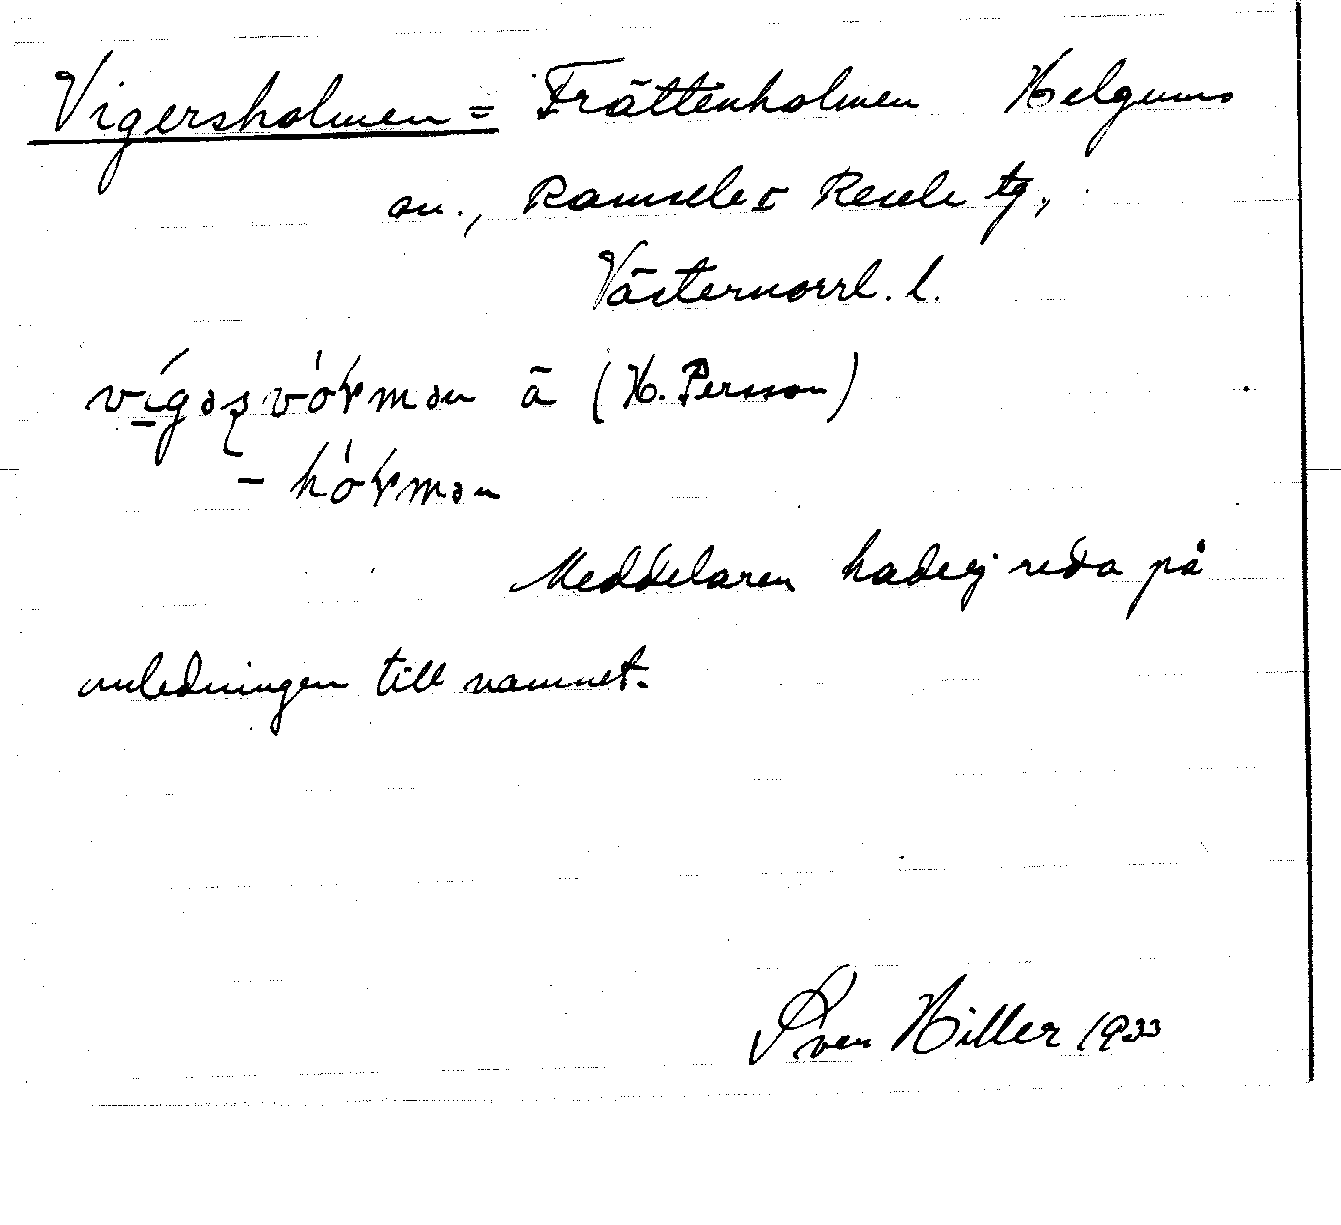 Vigersholmen = Frättenholmen Helgums
sn., Ramsele o Resele tg,
Västernorrl. l.
ā (H. Persson)
Meddelaren hade ej reda på
anledningen till namnet.
Sven Hiller 1933